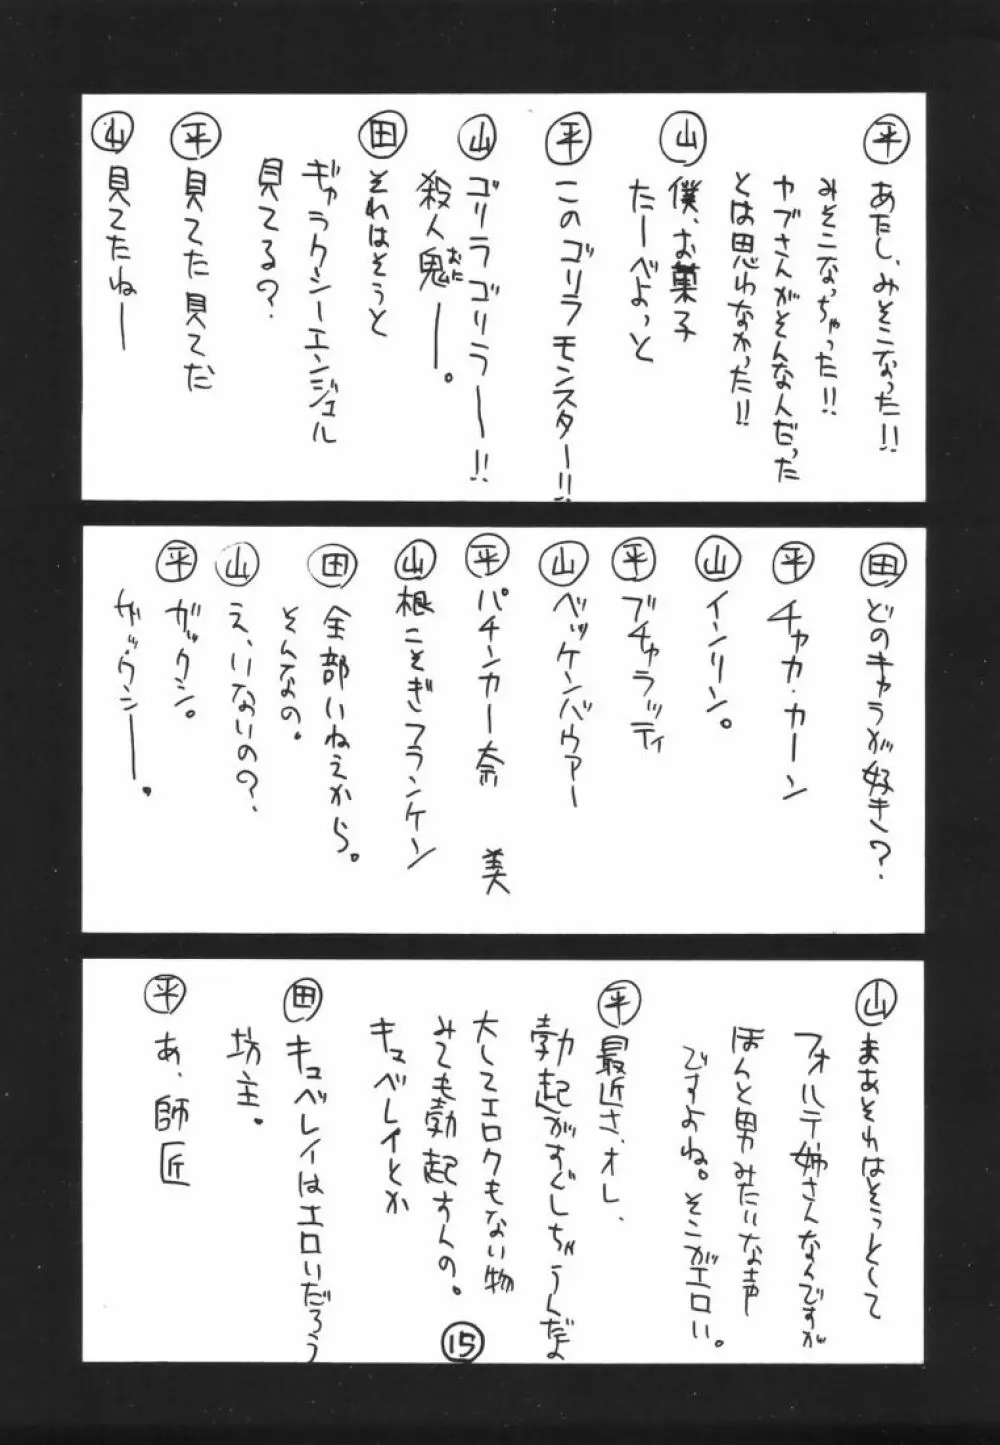 平 あたし、みそこなった!!
みそこなっちゃった!!
ヤブさんがそんな人だった
とは思わなかった!!
山 僕、お菓子
たーべよっと
平 このゴリラモンスター!!
山 ゴリラゴリラー!!
殺人鬼ー。
おに
田 それはそうと
ギャラクシーエンジェル
見てる?
平 見てた見てた
山 見てたねー
田 どのキャラが好き?
平 チャカ・カーン
山 インリン。
平 ブチャラッティ
山 ベッケンバウアー
平 パチンカー奈美
山 根こそぎフランケン
田 全部いねえから。
そんなの。
山 え、いないの?
平 ガックシ。
ガックシー。
山 まあそれはそうとして
フォルテ姉さんなんですが
ほんと男みたいな声
ですよね。そこがエロい。
平 最近さ、オレ、
勃起がすぐしちゃうんだよ
大してエロクもない物
みても勃起すんの。
キュベレイとか
田 キュベレイはエロいだろう
坊主。
平 あ、師匠
15